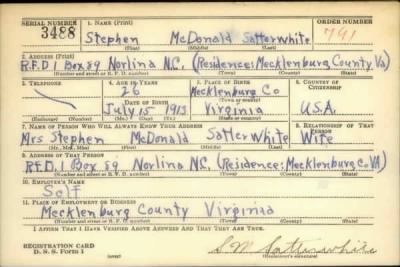 SERIAL NUMBER 1. NAME (Print) ORDER NUMBER
3488 Stephen McDonald Satterwhite 791
(First) (Middle) (Last)
2. ADDRESS (Print)
R.F.D 1 Box 89 Norlina N.C. (Residence; Mecklenburg County, Va)
(Number and street or R. F. D. number) (Town) (County) (State)
3. TELEPHONE 4. AGE IN YEARS 5. PLACE OF BIRTH 6. COUNTRY OF CITIZENSHIP
26 Mecklenburg Co
DATE OF BIRTH (Town or county)
July 15 1913 Virginia U.S.A.
(Exchange) (Number) (Mo.) (Day) (Yr.) (State or country)
7. NAME OF PERSON WHO WILL ALWAYS KNOW YOUR ADDRESS 8. RELATIONSHIP OF THAT PERSON
Mrs Stephen McDonald Satterwhite Wife
(Mr., Mrs., Miss) (First) (Middle) (Last)
9. ADDRESS OF THAT PERSON
R.F.D. 1 Box 89 Norlina N.C. (Residence; Mecklenburg Co VA)
(Number and street or R. F. D. number) (Town) (County) (State)
10. EMPLOYER'S NAME
Self
11. PLACE OF EMPLOYMENT OR BUSINESS
Mecklenburg County Virginia
(Number and street or R. F. D. number) (Town) (County) (State)
I AFFIRM THAT I HAVE VERIFIED ABOVE ANSWERS AND THAT THEY ARE TRUE.
REGISTRATION CARD S. M. Satterwhite
D. S. S. Form 1 (over) (Registrant's signature)